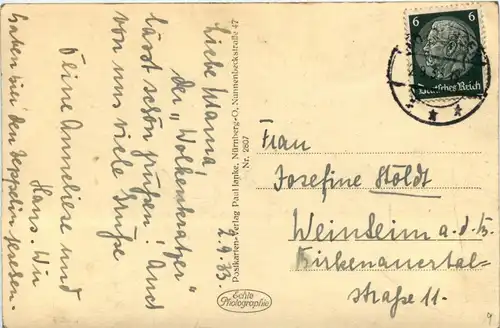 7.9.33.
Liebe Mama!
der „Wolkenkratzer"
lässt schön grüßen! Auch
von uns viele Grüße
Deine Anneliese und
Hans. Wir
haben hier den Zeppelin gesehen.
Postkarten-Verlag Paul Janke, Nürnberg-O, Nunnenbeckstraße 47
Nr. 2807
Echte
Photographie
6 6
Deutsches Reich
Frau
Josefine Höldt
Weinheim a.d.B.
Birkenauertal-
straße 11.